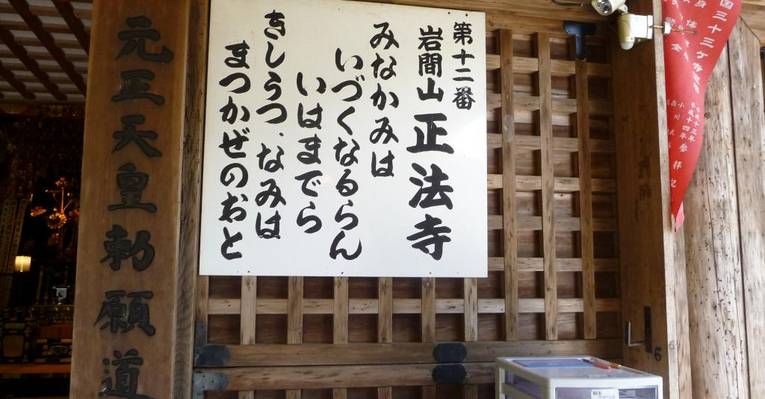 第十二番
岩間山 正法寺
みなかみは
いづくなるらん
いはまでら
きしうつ、なみは
まつかぜのおと
元正天皇勅願道
国三十三ケ所